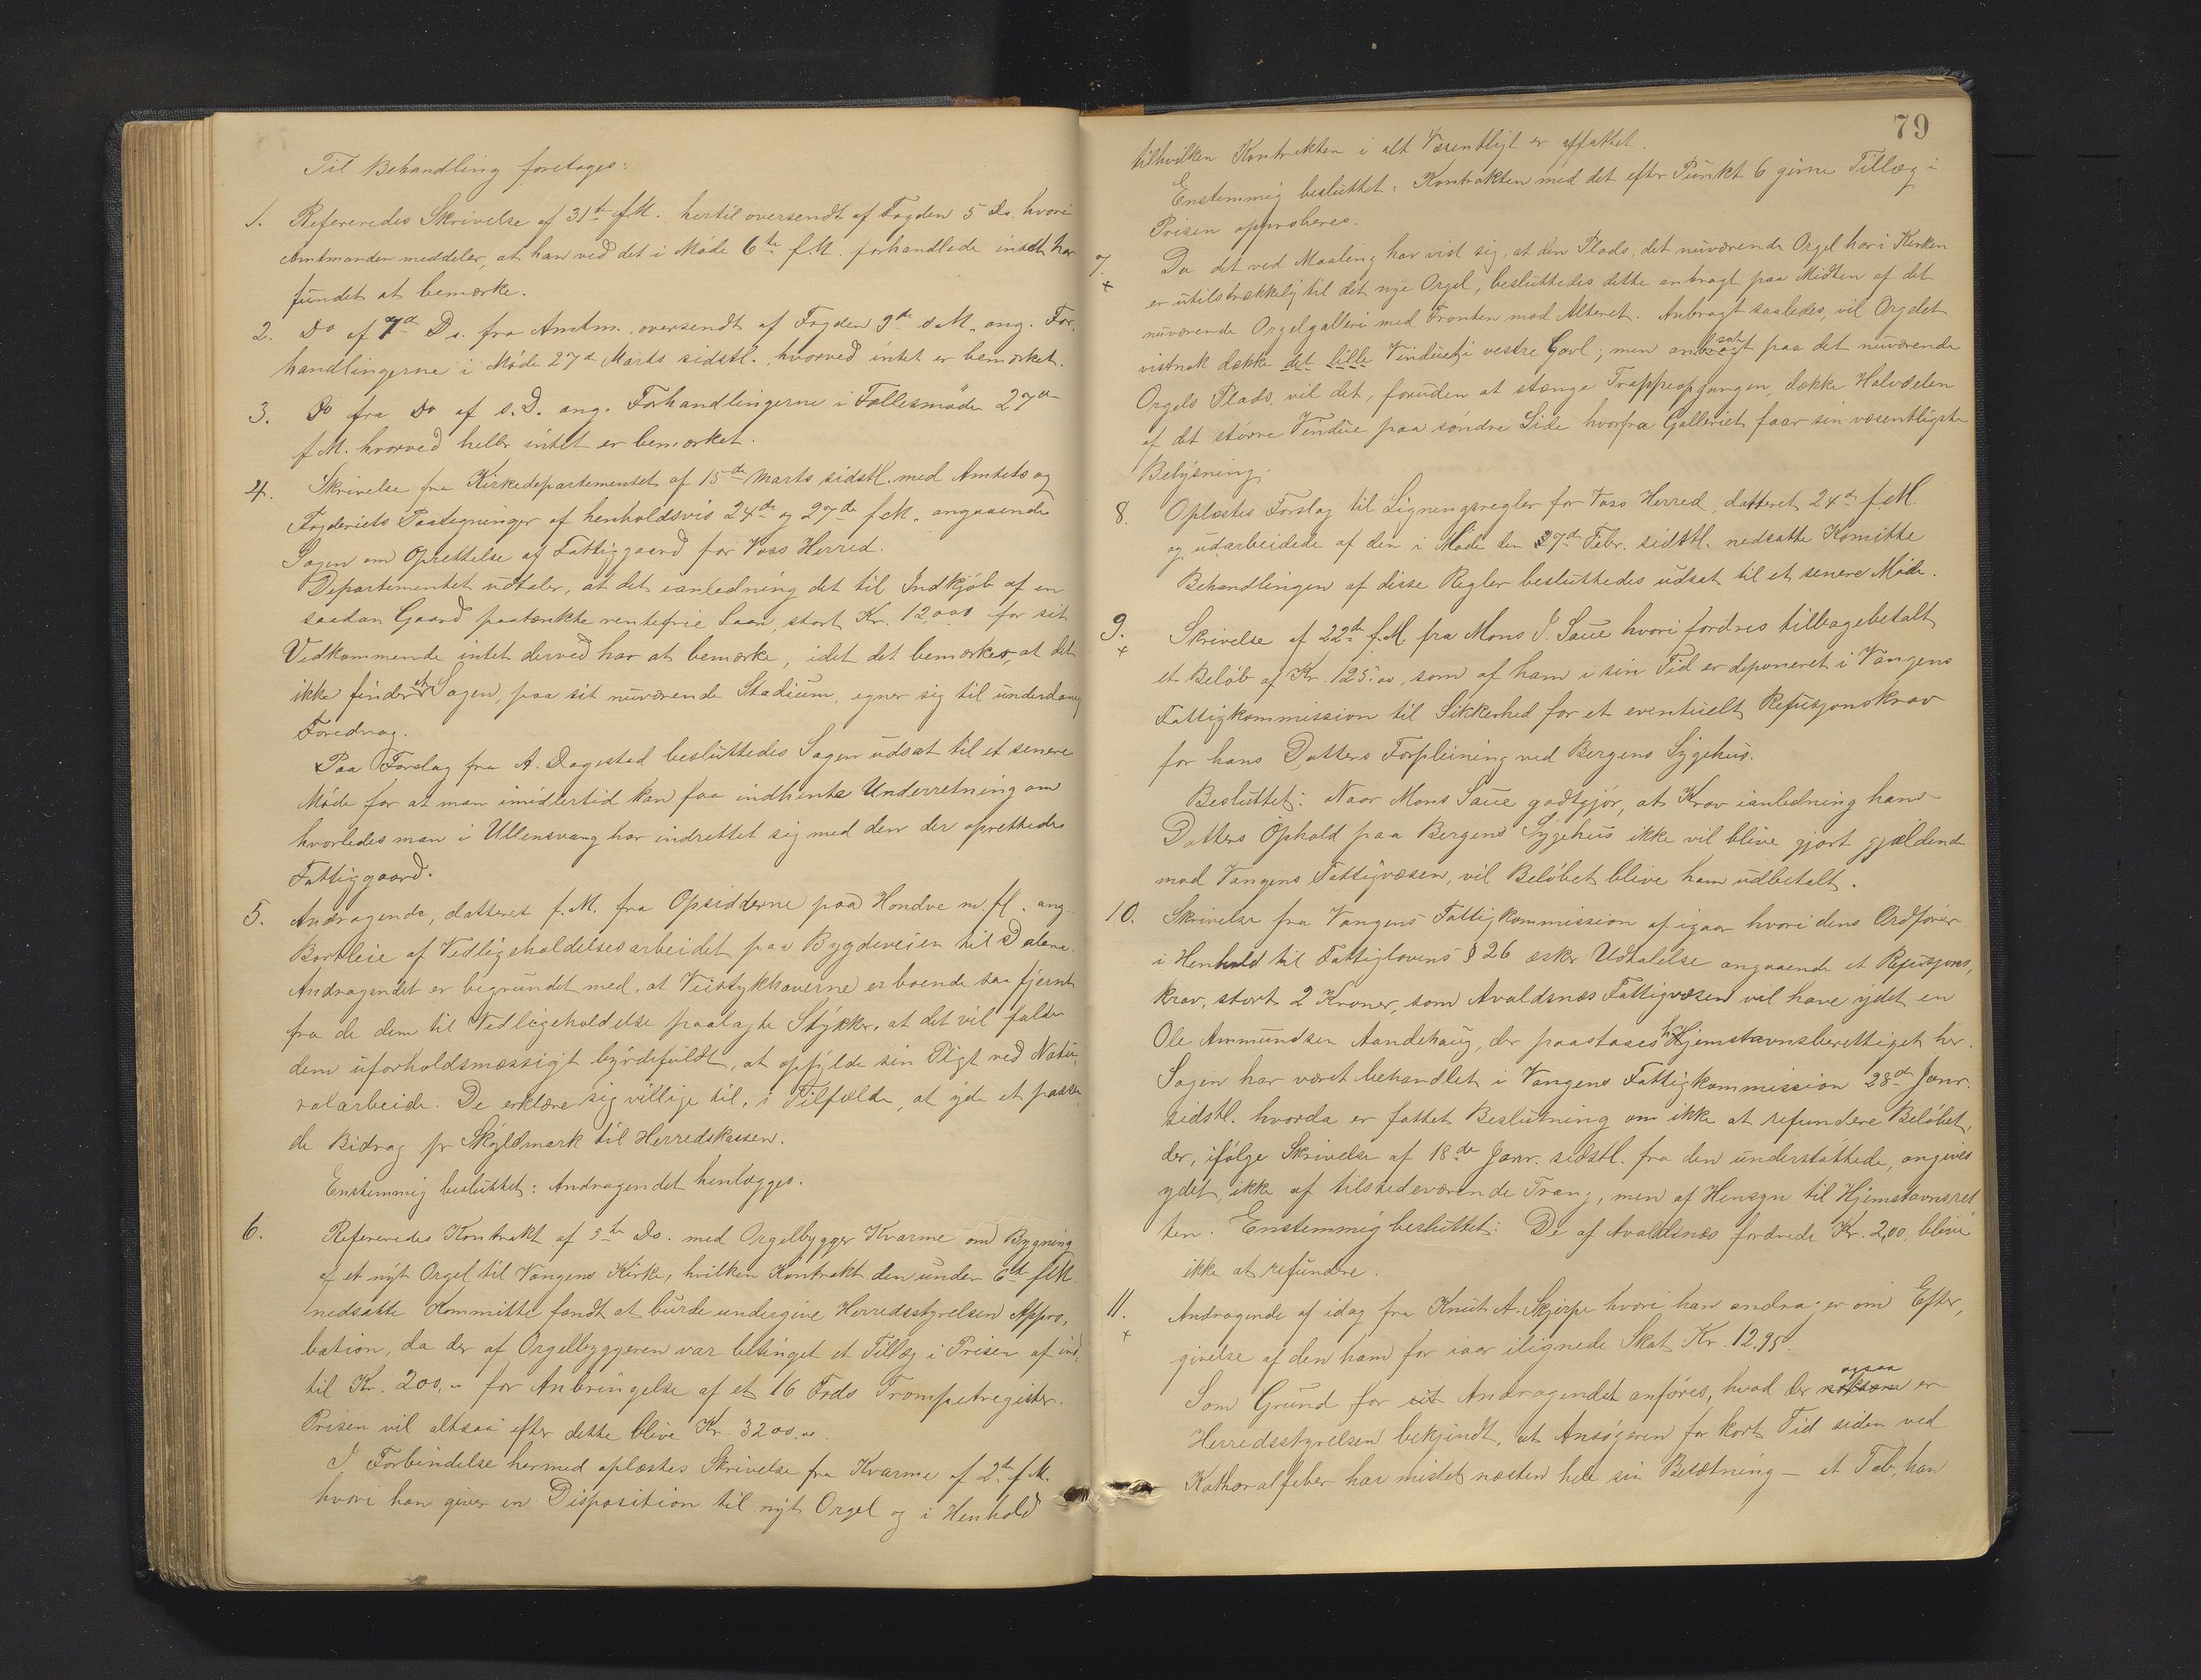 Til Behandling foretages:
1. Refereredes Skrivelse af 31te f.M. hertil oversendt af Fogden 5 ds. hvori
Amtmanden meddeler, at han ved det i Møde 6te f.M. forhandlede intet har
fundet at bemærke.
2. Do af 7de Ds. fra Amtm. oversendt af Fogden 9de d.M. ang. For-
handlingerne i Møde 27de Marts sidstl. hvorved intet er bemærket.
3. Do fra Do af s.D. ang. Forhandlingerne i Fællesmøde 27de
f.M. hvorved heller intet er bemærket.
4. Skrivelse fra Kirkedepartementet af 15de Marts sidstl. med Amtets og
Fogderiets Paategninger af henholdsvis 24de og 27de f.M. angaaende
Sagen om Oprettelse af Fattiggaard for Voss Herred.
Departementet udtaler, at det ianledning det til Indkjøb af en
saadan Gaard paatænkte rentefrie Laan, stort Kr. 12,000 for sit
Vedkommende intet derved har at bemærke, idet det bemærkes, at det
ikke finder at Sagen, paa sit nuværende Stadium, egner sig til underdanig
Foredrag.
Paa Forslag fra A. Dagestad besluttedes Sagen udsat til et senere
Møde for at man imidlertid kan faa indhente Underretning om
hvorledes man i Ullensvang har indrettet sig med den der oprettede
Fattiggaard.
5. Andragende, datteret f.M. fra Opsidderne paa Hondve m.fl. ang.
Bortleie af Vedligeholdelsesarbeidet paa Bygdeveien til Dalene.
Andragendet er begrundet med, at Veistykkhaverne er boende saa fjernt
fra de dem til Vedligeholdelse paalagte Stykker, at det vil falde
dem uforholdsmæssigt byrdefuldt, at opfylde sin Pligt ved Natu-
ralarbeide. De erklære sig villige til, i Tilfælde, at yde et passen
de Bidrag pr Skyldmark til Herredskassen.
Enstemmig besluttet: Andragendet henlægges.
6. Refereredes Kontrakt af 5te Ds. med Orgelbygger Kvarme om Bygning
af et nyt Orgel til Vangens Kirke, hvilken Kontrakt den under 6te f.M.
nedsatte Kommitte fandt at burde undergive Herredsstyrelsen Appro-
bation, da der af Orgelbyggeren var betinget et Tillæg i Prisen af ind-
til Kr. 200,- for Anbringelse af et 16 Fods Trompetregister.
Prisen vil altsaa efter dette blive Kr. 3200.00.
I Forbindelse hermed oplæstes Skrivelse fra Kvarme af 2de f.M.
hvori han giver en Disposition til nyt Orgel og i Henhold
79
tilhvilken Kontrakten i alt Væsentligt er affattet.
Enstemmig besluttet: Kontrakten med det efter Punkt 6 givne Tillæg i
Prisen approberes.
7. Da det ved Maaling har vist sig, at den Plads, det nuværende Orgel har i Kirken
+ er utilstrækkelig til det nye Orgel, besluttedes dette anbragt paa Midten af det
nuværende Orgelgalleri med Fronten mod Alteret. Anbragt saaledes, vil Orgelet
vistnok dække det lille Vindue i vestre Gavl; men ansat paa det nuværende
Orgels Plads, vil det, foruden at stænge Trappeopgangen, dække Halvdelen
af det større Vindue paa søndre Side hvorfra Galleriet faar sin væsentligste
Belysning.
8. Oplæstes Forslag til Ligningsregler for Voss Herred, datteret 24de f.M.
og udarbeidede af den i Møde den 27de Febr. sidstl. nedsatte Komitte
Behandlingen af disse Regler besluttedes udsat til et senere Møde.
9. Skrivelse af 22de f.M. fra Mons J. Saue hvori fordres tilbagebetalt
+ et Beløb af Kr. 125.00, som af ham i sin Tid er deponeret i Vangens
Fattigkommission til Sikkerhed for et eventuelt Refusjonskrav
for hans Datters Forpleining ved Bergens Sygehus.
Besluttet: Naar Mons Saue godtgjør, at Krav ianledning hans
Datters Ophold paa Bergens Sygehus ikke vil blive gjort gjældende
mod Vangens Fattigvæsen, vil Beløbet blive ham udbetalt.
10. Skrivelse fra Vangens Fattigkommission af igaar hvori dens Ordfører
i Henhold til Fattiglovens § 26 æsker Udtalelse angaaende et Refusjons-
krav, stort 2 Kroner, som Avaldsnæs Fattigvæsen vil have ydet en
Ole Ammundsen Aandehaug, der paastaaes hjemstavnsberettiget her.
Sagen har været behandlet i Vangens Fattigkommission 28de Janr.
sidstl. hvorda er fattet Beslutning om ikke at refundere Beløbet,
der, ifølge Skrivelse af 18de Janr. sidstl. fra den understøttede, angives
ydet, ikke af tilstedeværende Trang, men af Hensyn til Hjemstavnsret
ten. Enstemmig besluttet: De af Avaldsnæs fordrede Kr. 2,00, blive
ikke at refundere.
11. Andragende af idag fra Knut A. Skjerpe hvori han andrager om Efter-
+ givelse af den ham for iaar ilignede Skat Kr. 12.95.
Som Grund for Andragendet anføres, hvad der ogsaa er
Herredsstyrelsen bekjendt, at Ansøgeren for kort Tid siden ved
Katharalfeber har mistet næsten hele sin Besætning — et Tab, han